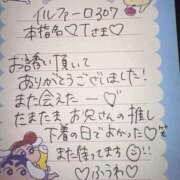 イルファーロ307
本指名♡Tさま♡
お誘い頂いて
ありがとうございました!
また会えたー♡
たまたま お兄さんの推し
下着の日でよかった♡
また待ってます!!
♡ふうわ♡